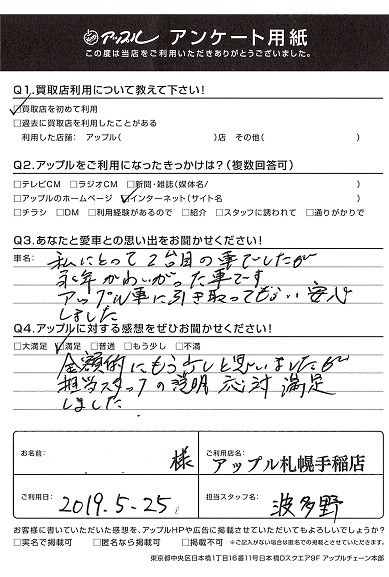 アップル アンケート用紙
この度は当店をご利用いただきありがとうございました。
Q1.買取店利用について教えて下さい!
☑買取店を初めて利用
□過去に買取店を利用したことがある
利用した店舗: アップル( )店 その他( )
Q2.アップルをご利用になったきっかけは?(複数回答可)
□テレビCM □ラジオCM □新聞・雑誌(媒体名/ )
□アップルのホームページ ☑インターネット(サイト名 )
□チラシ □DM □利用経験があるので □紹介 □スタッフに誘われて □通りがかりで
Q3.あなたと愛車との思い出をお聞かせください!
車名: 私にとって2台目の車でしたが
永年かわいがった車です
アップル車に引き取ってもらい安心
しました
Q4.アップルに対する感想をぜひお聞かせください!
□大満足 ☑満足 □普通 □もう少し □不満
金額的にもう少しと思いましたが
担当スタッフの説明 応対 満足
しました
お名前: 様
ご利用店名: アップル札幌手稲店
ご利用日: 2019.5-25
担当スタッフ名: 波多野
お客様に書いていただいた感想を、アップルHPや広告に掲載させていただいてもよろしいでしょうか?
□実名で掲載可 □匿名なら掲載可 □掲載不可 ※ご記入がない場合は匿名での掲載とさせていただきます。
東京都中央区日本橋1丁目16番11号日本橋Dスクエア9F アップルチェーン本部